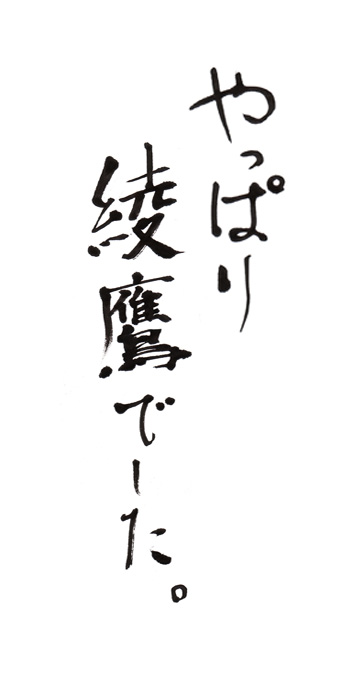 やっぱり
綾鷹でした。